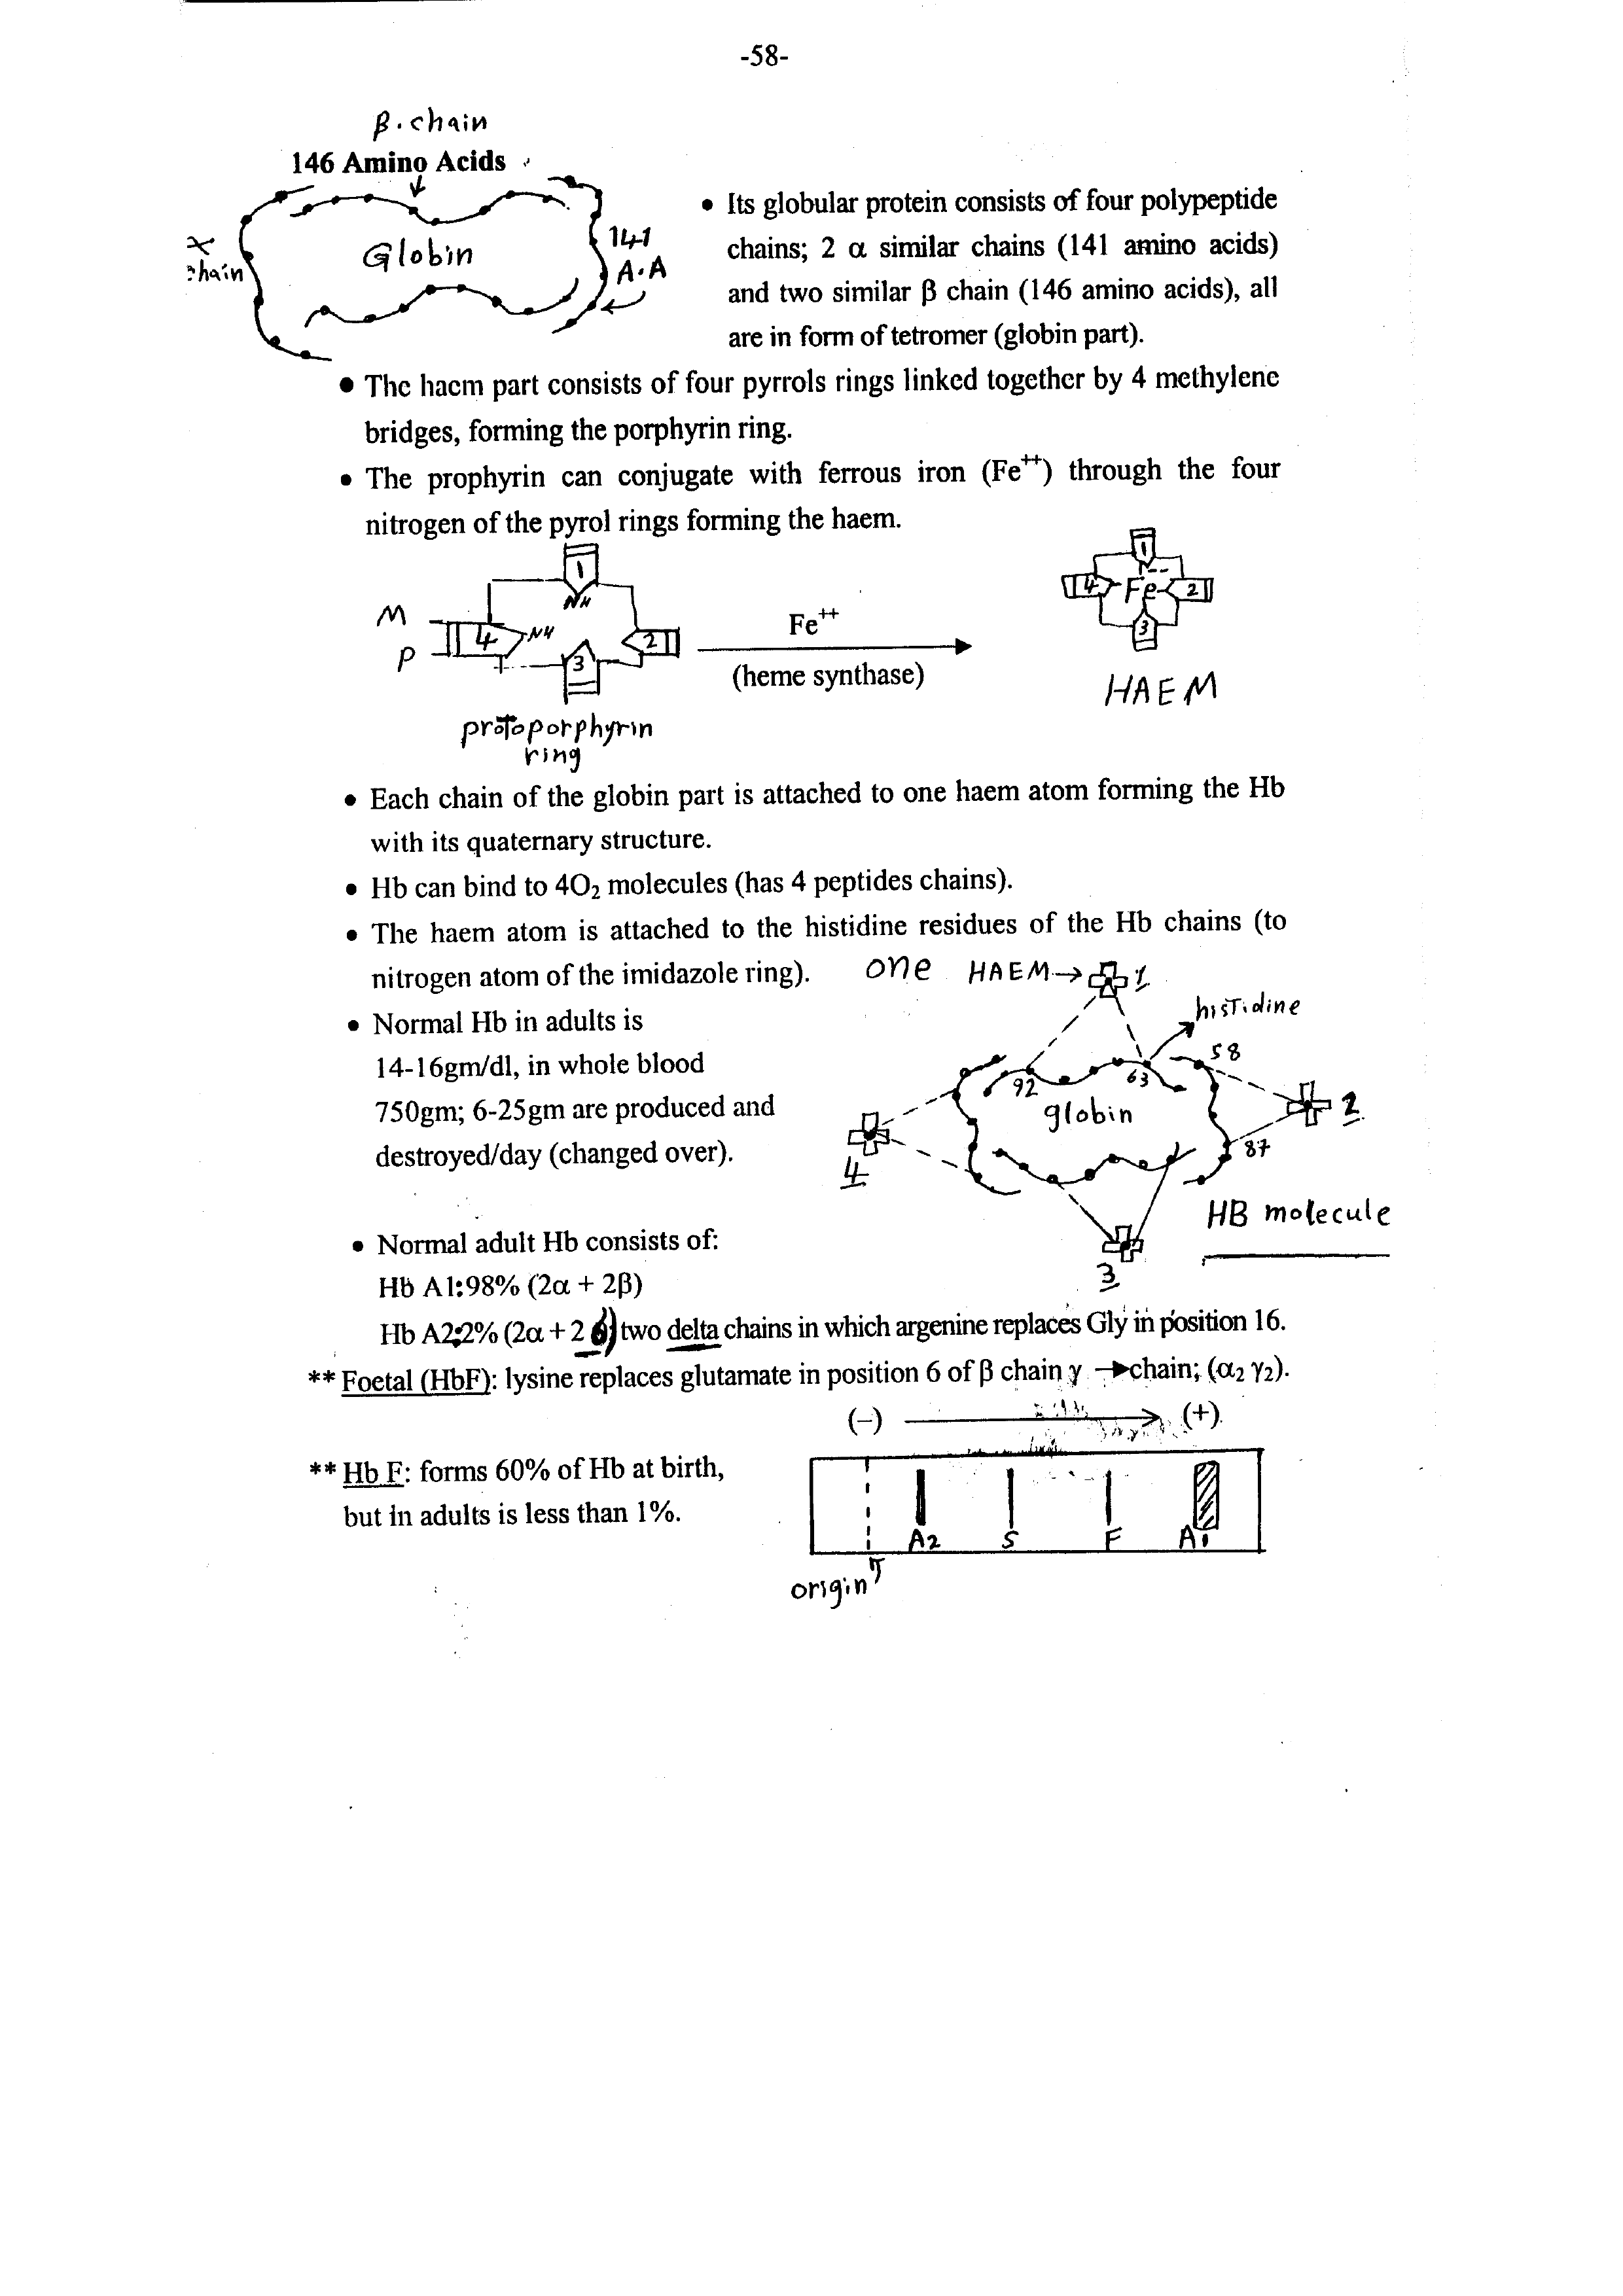 -58-
β.chain
146 Amino Acids
Globin
chain
141
A.A
• Its globular protein consists of four polypeptide
chains; 2 α similar chains (141 amino acids)
and two similar β chain (146 amino acids), all
are in form of tetromer (globin part).
• The haem part consists of four pyrrols rings linked together by 4 methylene
bridges, forming the porphyrin ring.
• The prophyrin can conjugate with ferrous iron (Fe⁺⁺) through the four
nitrogen of the pyrol rings forming the haem.
M
P
1
NH
4
NH
2
3
protoporphyrin
ring
Fe⁺⁺
(heme synthase)
1
4
Fe
2
3
HAEM
• Each chain of the globin part is attached to one haem atom forming the Hb
with its quaternary structure.
• Hb can bind to 4O₂ molecules (has 4 peptides chains).
• The haem atom is attached to the histidine residues of the Hb chains (to
nitrogen atom of the imidazole ring).
one HAEM→ 1
histidine
58
92
63
globin
2
87
4
3
HB molecule
• Normal Hb in adults is
14-16gm/dl, in whole blood
750gm; 6-25gm are produced and
destroyed/day (changed over).
• Normal adult Hb consists of:
Hb A1:98% (2α + 2β)
Hb A2:2% (2α + 2 δ) two delta chains in which argenine replaces Gly in position 16.
** Foetal (HbF): lysine replaces glutamate in position 6 of β chain γ →chain; (α₂ γ₂).
(–) → (+)
** Hb F: forms 60% of Hb at birth,
but in adults is less than 1%.
A2
S
F
A1
origin